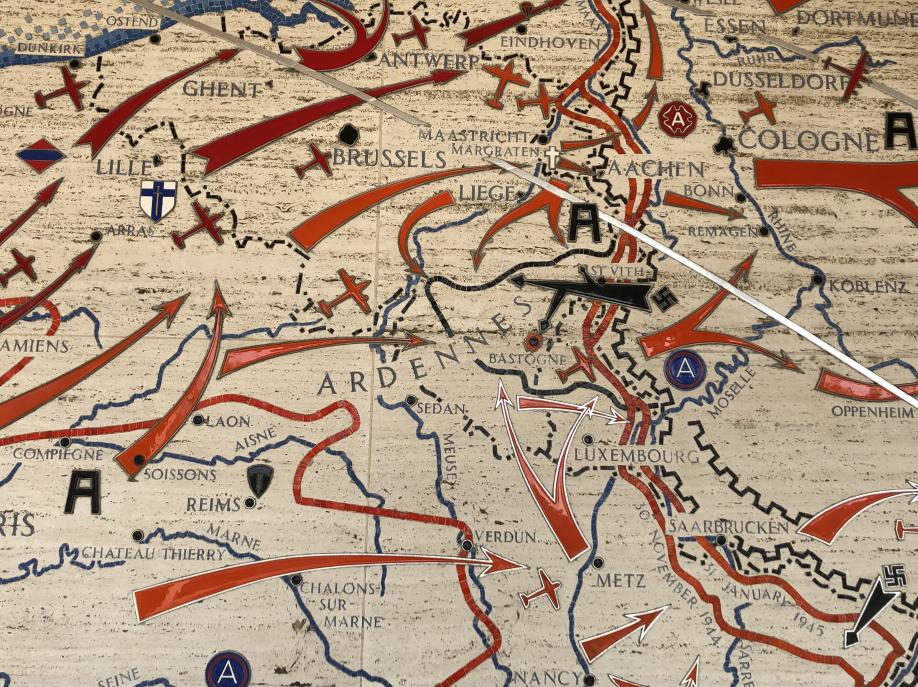 OSTEND
DUNKIRK
GHENT
ANTWERP
EINDHOVEN
ESSEN
DORTMUN
RUHR
DÜSSELDORF
LILLE
ARRAS
BRUSSELS
MAASTRICHT
MARGRATEN
LIEGE
AACHEN
A
COLOGNE
A
BONN
REMAGEN
RHINE
KOBLENZ
A
ST VITH
AMIENS
ARDENNES
BASTOGNE
A
MOSELLE
OPPENHEIM
SEDAN
LAON
COMPIEGNE
AISNE
SOISSONS
MEUSE
LUXEMBOURG
A
RIS
REIMS
MARNE
CHATEAU THIERRY
VERDUN
SAARBRUCKEN
30 NOVEMBER 1944
31 JANUARY 1945
METZ
CHALONS-
SUR
MARNE
SEINE
A
NANCY
SARRE